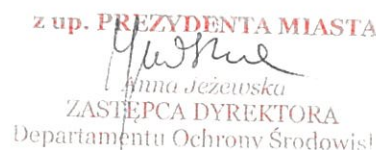 z up. PREZYDENTA MIASTA
Anna Jeżewska
ZASTĘPCA DYREKTORA
Departamentu Ochrony Środowis